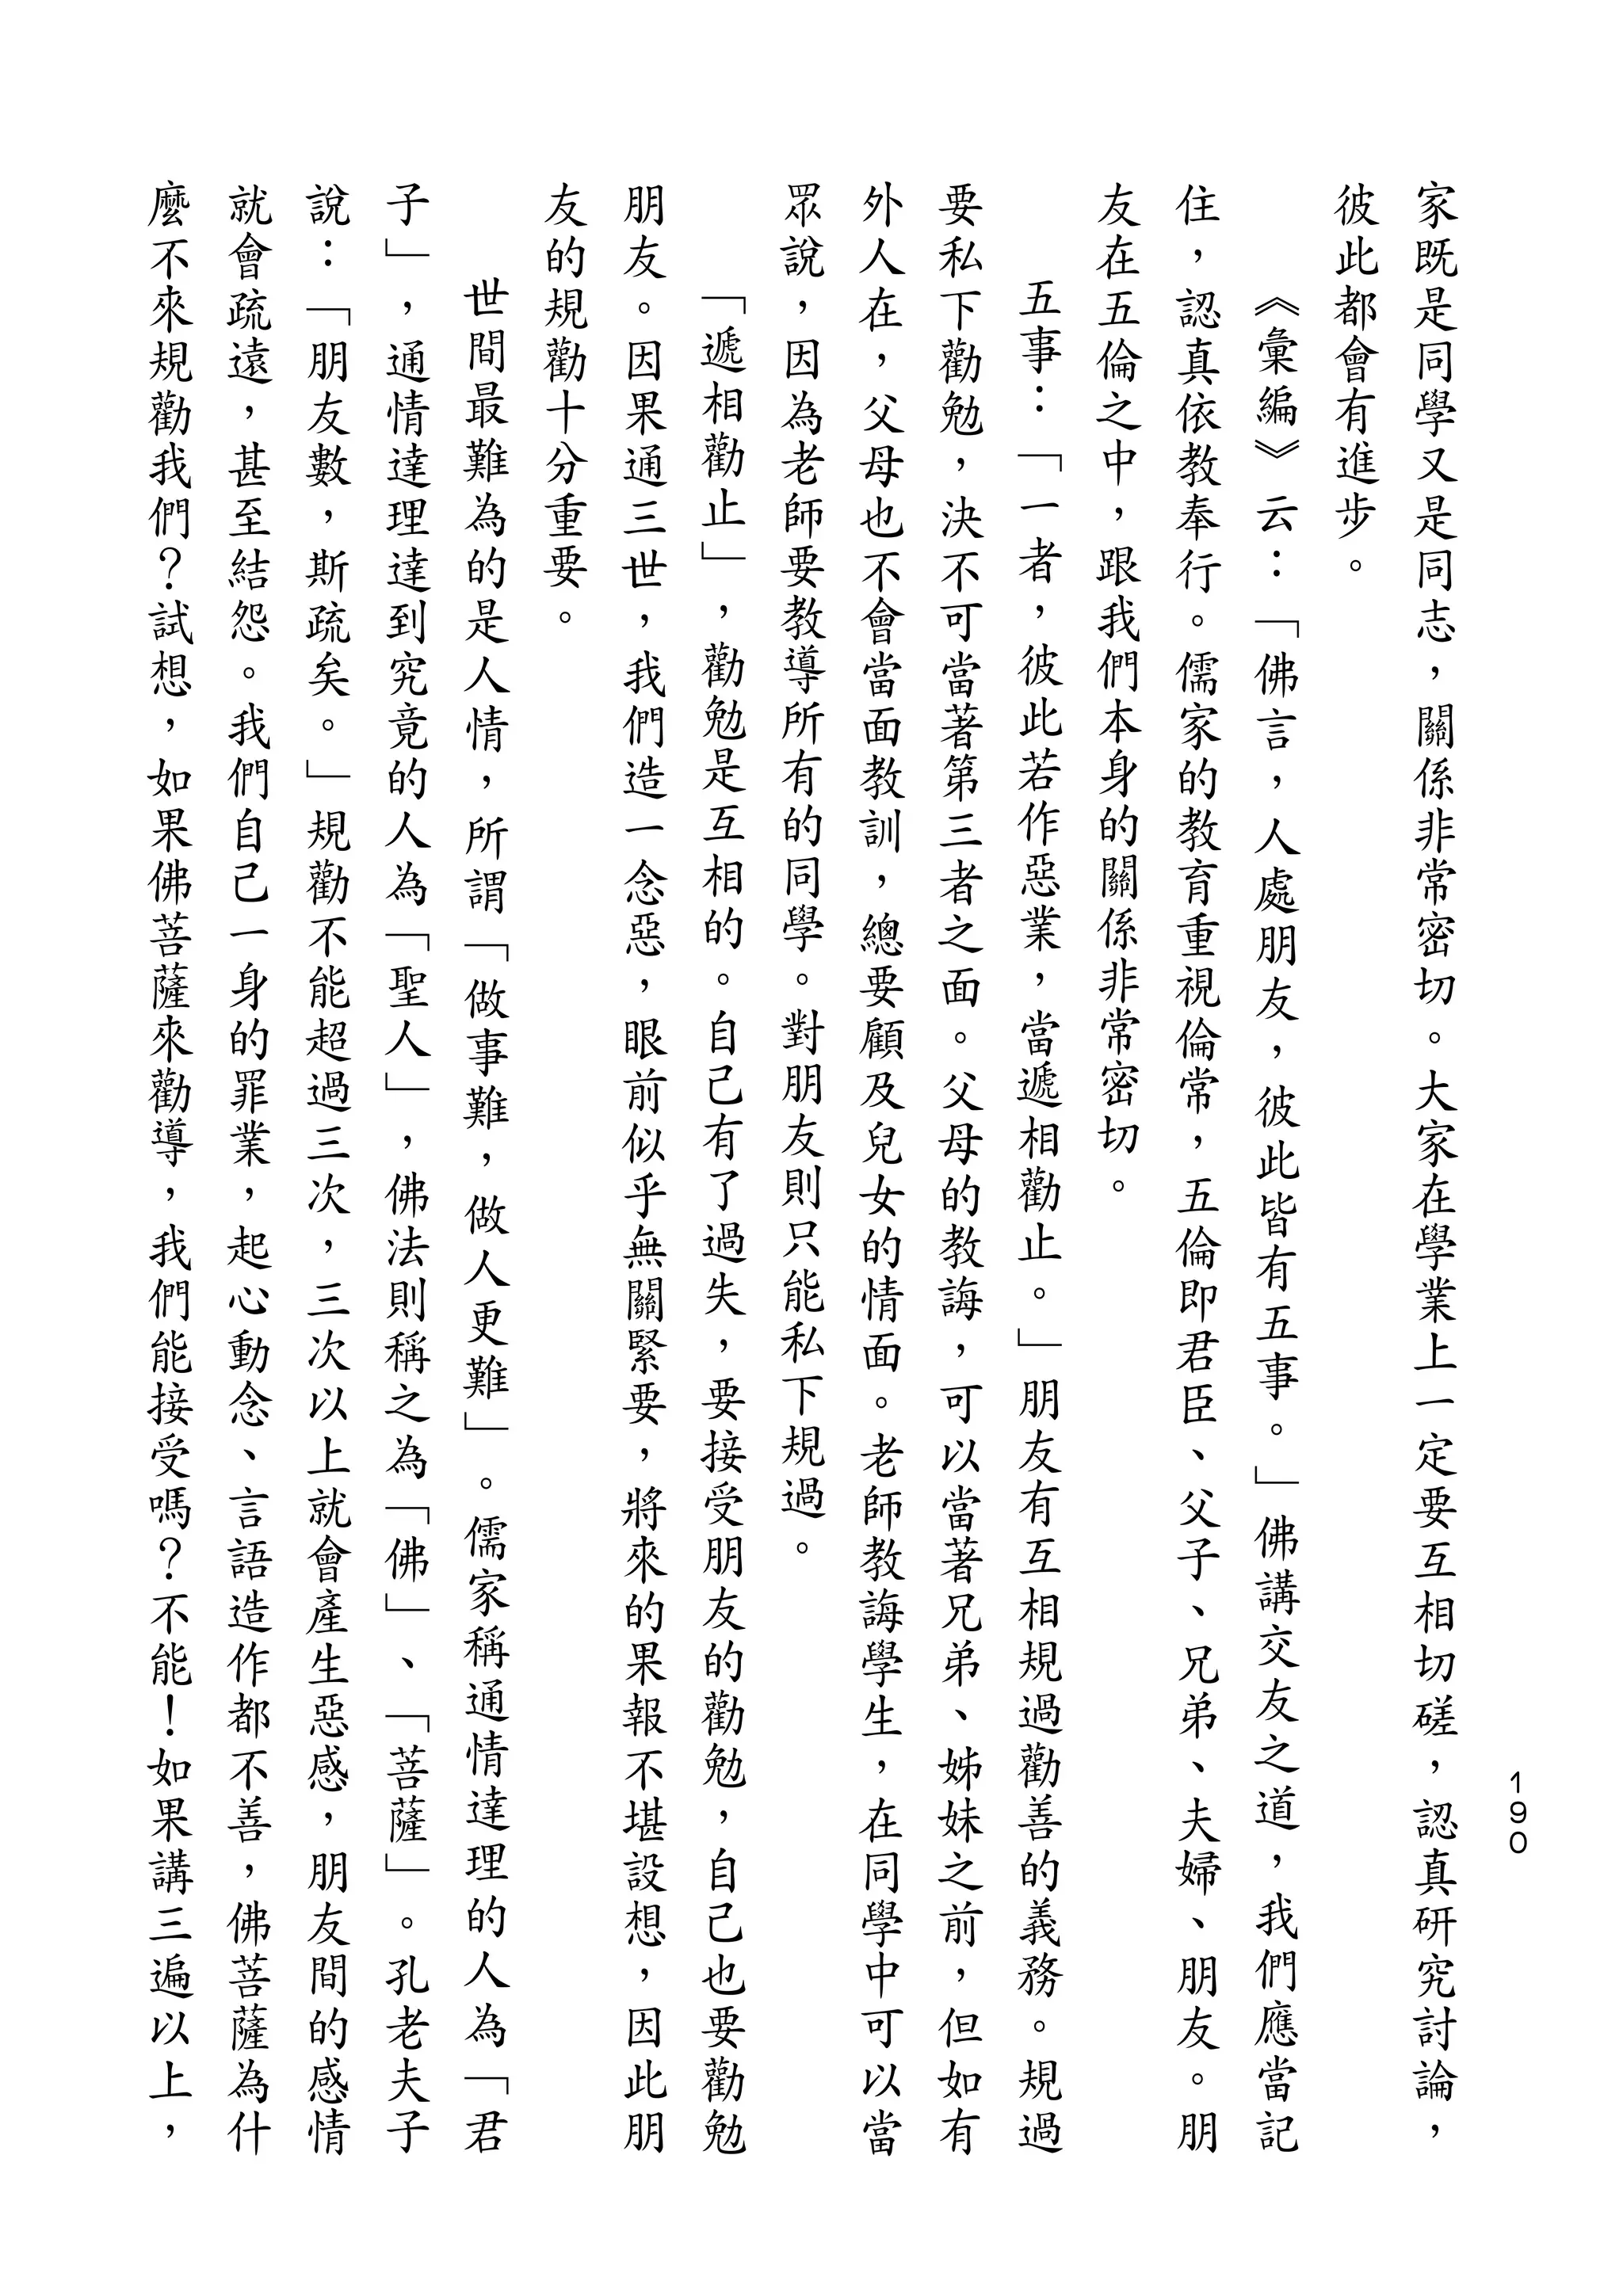 190
家既是同學又是同志，關係非常密切。大家在學業上一定要互相切磋，認真研究討論，
彼此都會有進步。
《彙編》云：「佛言，人處朋友，彼此皆有五事。」佛講交友之道，我們應當記
住，認真依教奉行。儒家的教育重視倫常，五倫即君臣、父子、兄弟、夫婦、朋友。朋
友在五倫之中，跟我們本身的關係非常密切。
五事：「一者，彼此若作惡業，當遞相勸止。」朋友有互相規過勸善的義務。規過
要私下勸勉，決不可當著第三者之面。父母的教誨，可以當著兄弟、姊妹之前，但如有
外人在，父母也不會當面教訓，總要顧及兒女的情面。老師教誨學生，在同學中可以當
眾說，因為老師要教導所有的同學。對朋友則只能私下規過。
「遞相勸止」，勸勉是互相的。自己有了過失，要接受朋友的勸勉，自己也要勸勉
朋友。因果通三世，我們造一念惡，眼前似乎無關緊要，將來的果報不堪設想，因此朋
友的規勸十分重要。
世間最難為的是人情，所謂「做事難，做人更難」。儒家稱通情達理的人為「君
子」，通情達理達到究竟的人為「聖人」，佛法則稱之為「佛」、「菩薩」。孔老夫子
說：「朋友數，斯疏矣。」規勸不能超過三次，三次以上就會產生惡感，朋友間的感情
就會疏遠，甚至結怨。我們自己一身的罪業，起心動念、言語造作都不善，佛菩薩為什
麼不來規勸我們？試想，如果佛菩薩來勸導，我們能接受嗎？不能！如果講三遍以上，